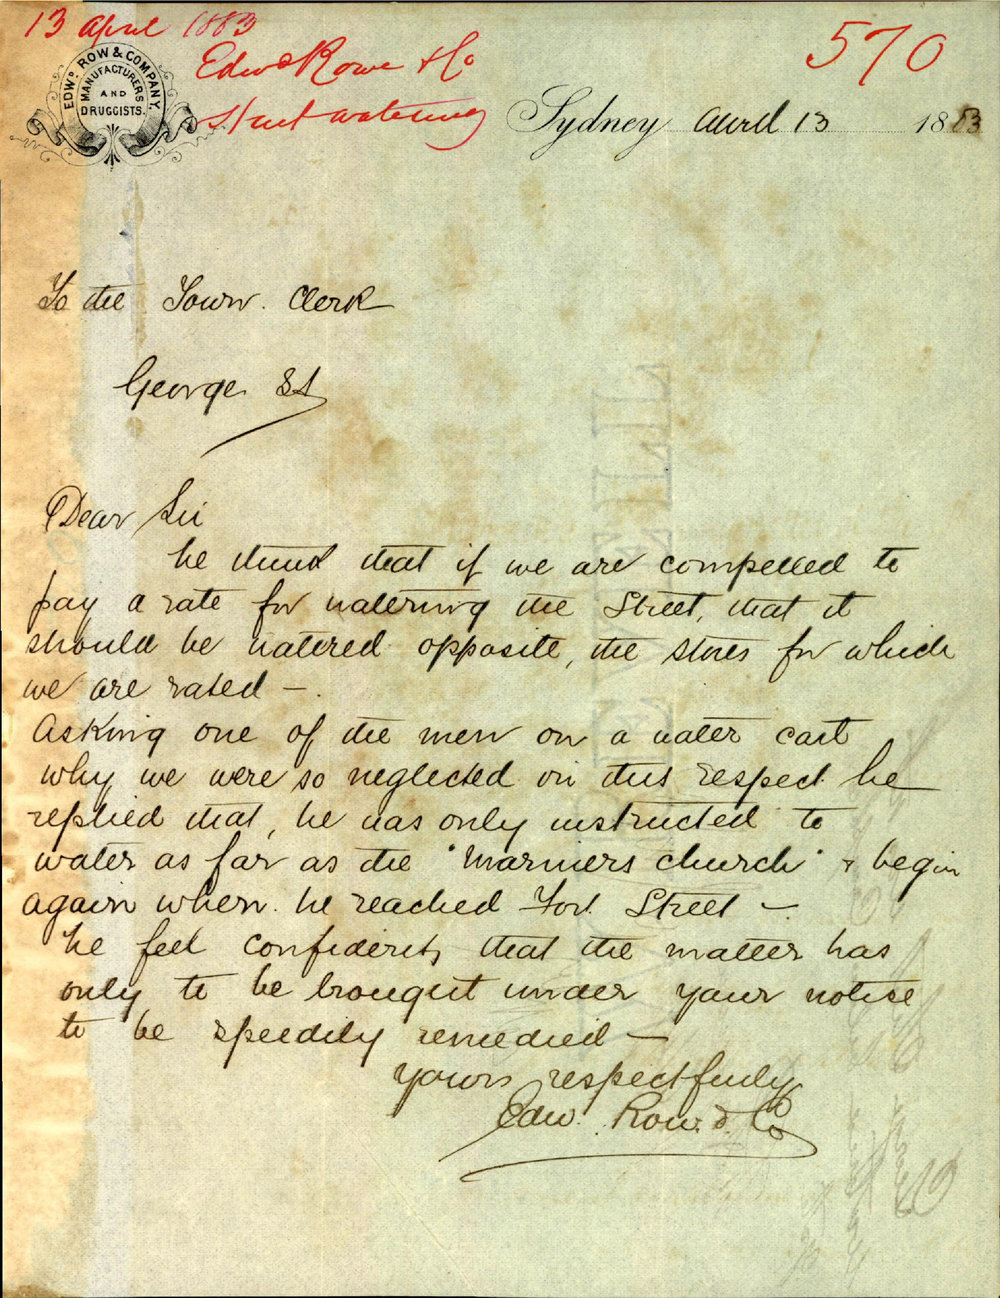 13 April 1883
Edwd Rowe & Co
Street watering
570
EDWD. ROW & COMPANY.
MANUFACTURERS
AND
DRUGGISTS.
Sydney April 13 1883
To the Town Clerk
George St
Dear Sir
We think that if we are compelled to
pay a rate for watering the Street, that it
should be watered opposite, the stores for which
we are rated —
Asking one of the men on a water cart
why we were so neglected in this respect he
replied that, he was only instructed to
water as far as the "Mariners church" & begin
again when he reached Fort Street —
We feel confident, that the matter has
only to be brought under your notice
to be speedily remedied —
Yours respectfully
Edw. Row & Co